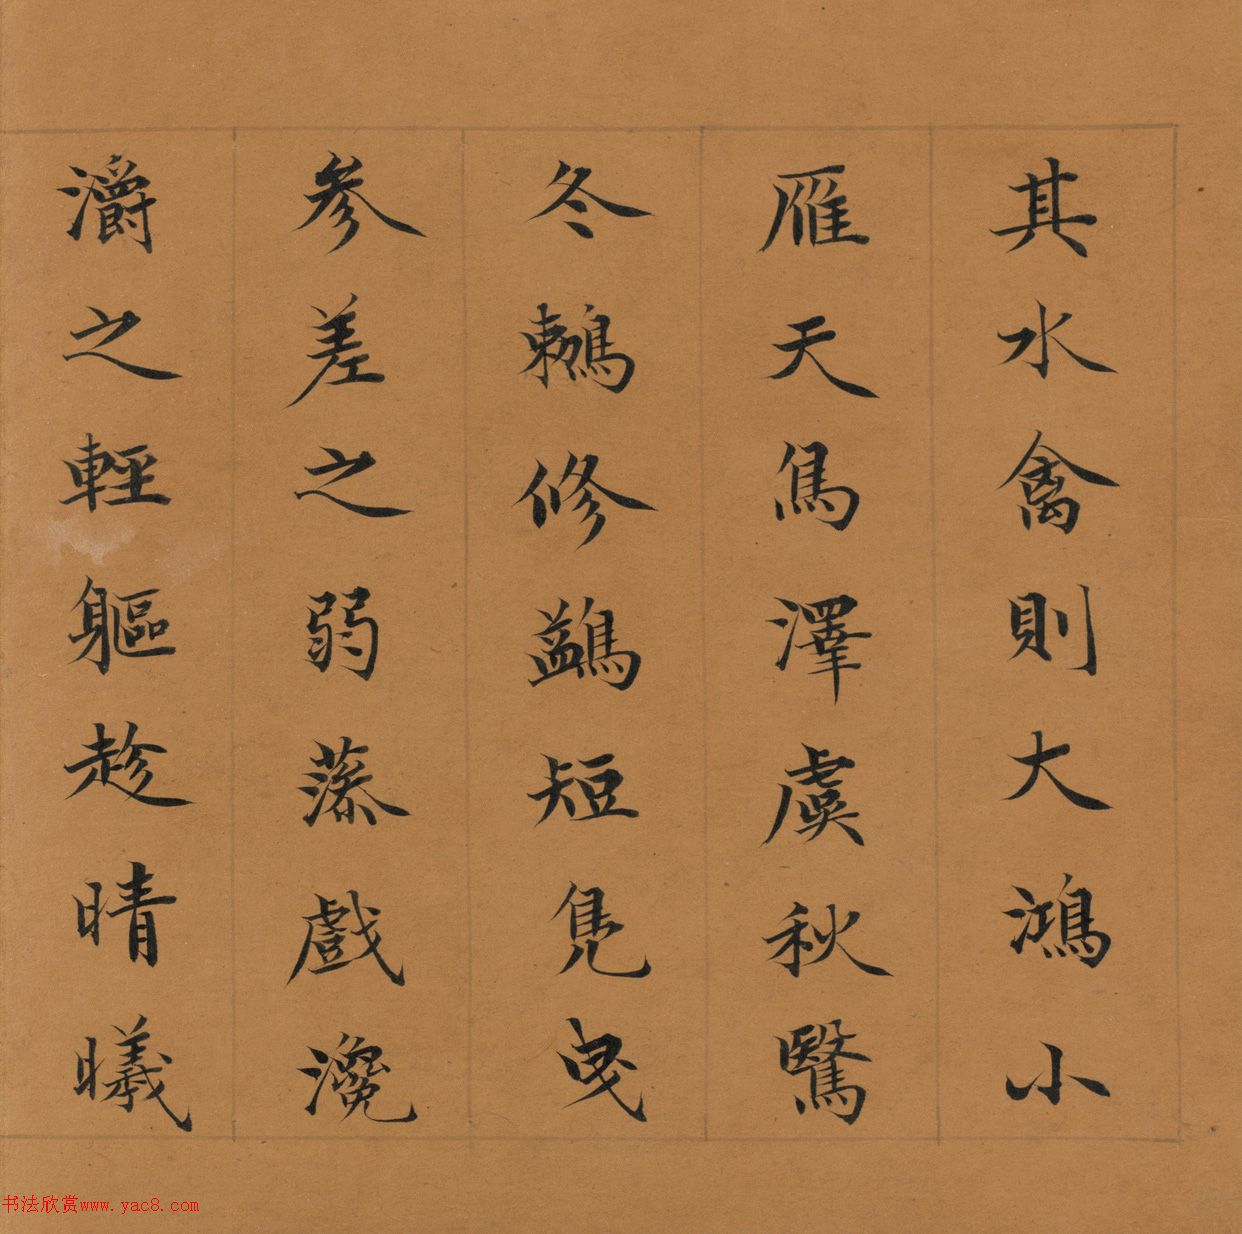 其水禽則大鴻小
雁天鳥澤虞秋鷖
冬鶒修鷁短鳧曳
參差之弱藻戲瀺
灂之輕軀趁晴曦
书法欣赏www.yac8.com